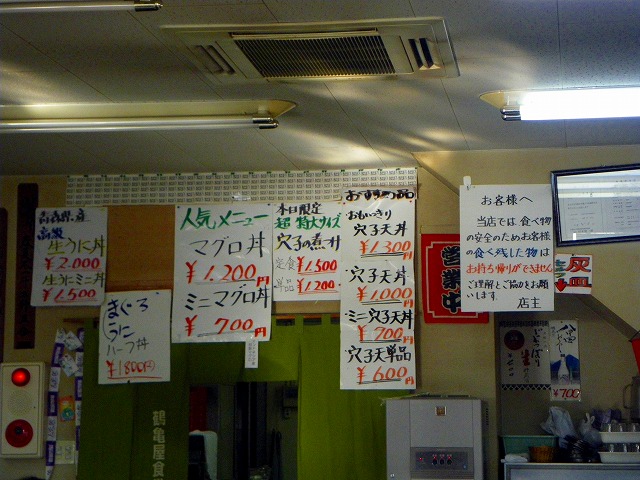 青森県産
高級
生うに丼
¥2.000
生うにミニ丼
¥1.500
まぐろ
うに
ハーフ丼
¥1800円
人気メニュー
マグロ丼
¥1.200円
ミニマグロ丼
¥700円
本日限定
超特大サイズ
穴子の煮つけ
定食 ¥1.500
単品 ¥1.200円
おすすめ品
おもいっきり
穴子天丼
¥1.300円
穴子天丼
¥1.000円
ミニ穴子天丼
¥700円
穴子天単品
¥600円
営業中
お客様へ
当店では食べ物
の安全のためお客様
の食べ残した物は
お持ち帰りができません
ご理解とご協力をお願
います。
店主
灰
¥700
鶴亀屋食